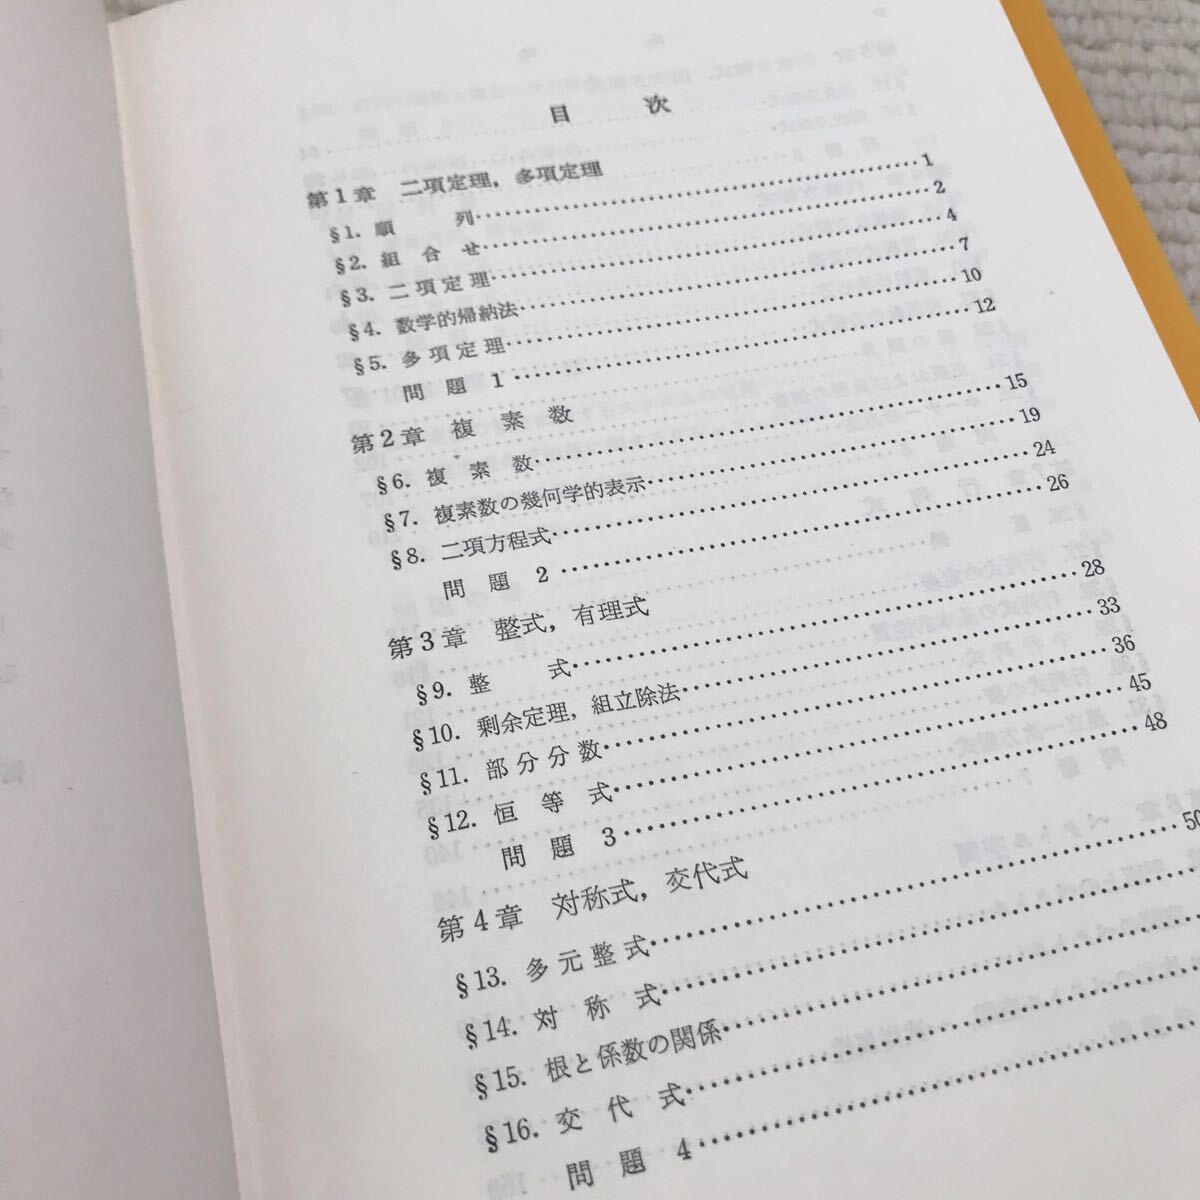 目 次
第1章 二項定理，多項定理
§1. 順 列 1
§2. 組 合 せ 2
§3. 二 項 定 理 4
§4. 数学的帰納法 7
§5. 多 項 定 理 10
問 題 1 12
第2章 複 素 数
§6. 複 素 数 15
§7. 複素数の幾何学的表示 19
§8. 二項方程式 24
問 題 2 26
第3章 整式，有理式
§9. 整 式 28
§10. 剰余定理，組立除法 33
§11. 部 分 分 数 36
§12. 恒 等 式 45
問 題 3 48
第4章 対称式，交代式
§13. 多 元 整 式 50
§14. 対 称 式
§15. 根と係数の関係
§16. 交 代 式
問 題 4